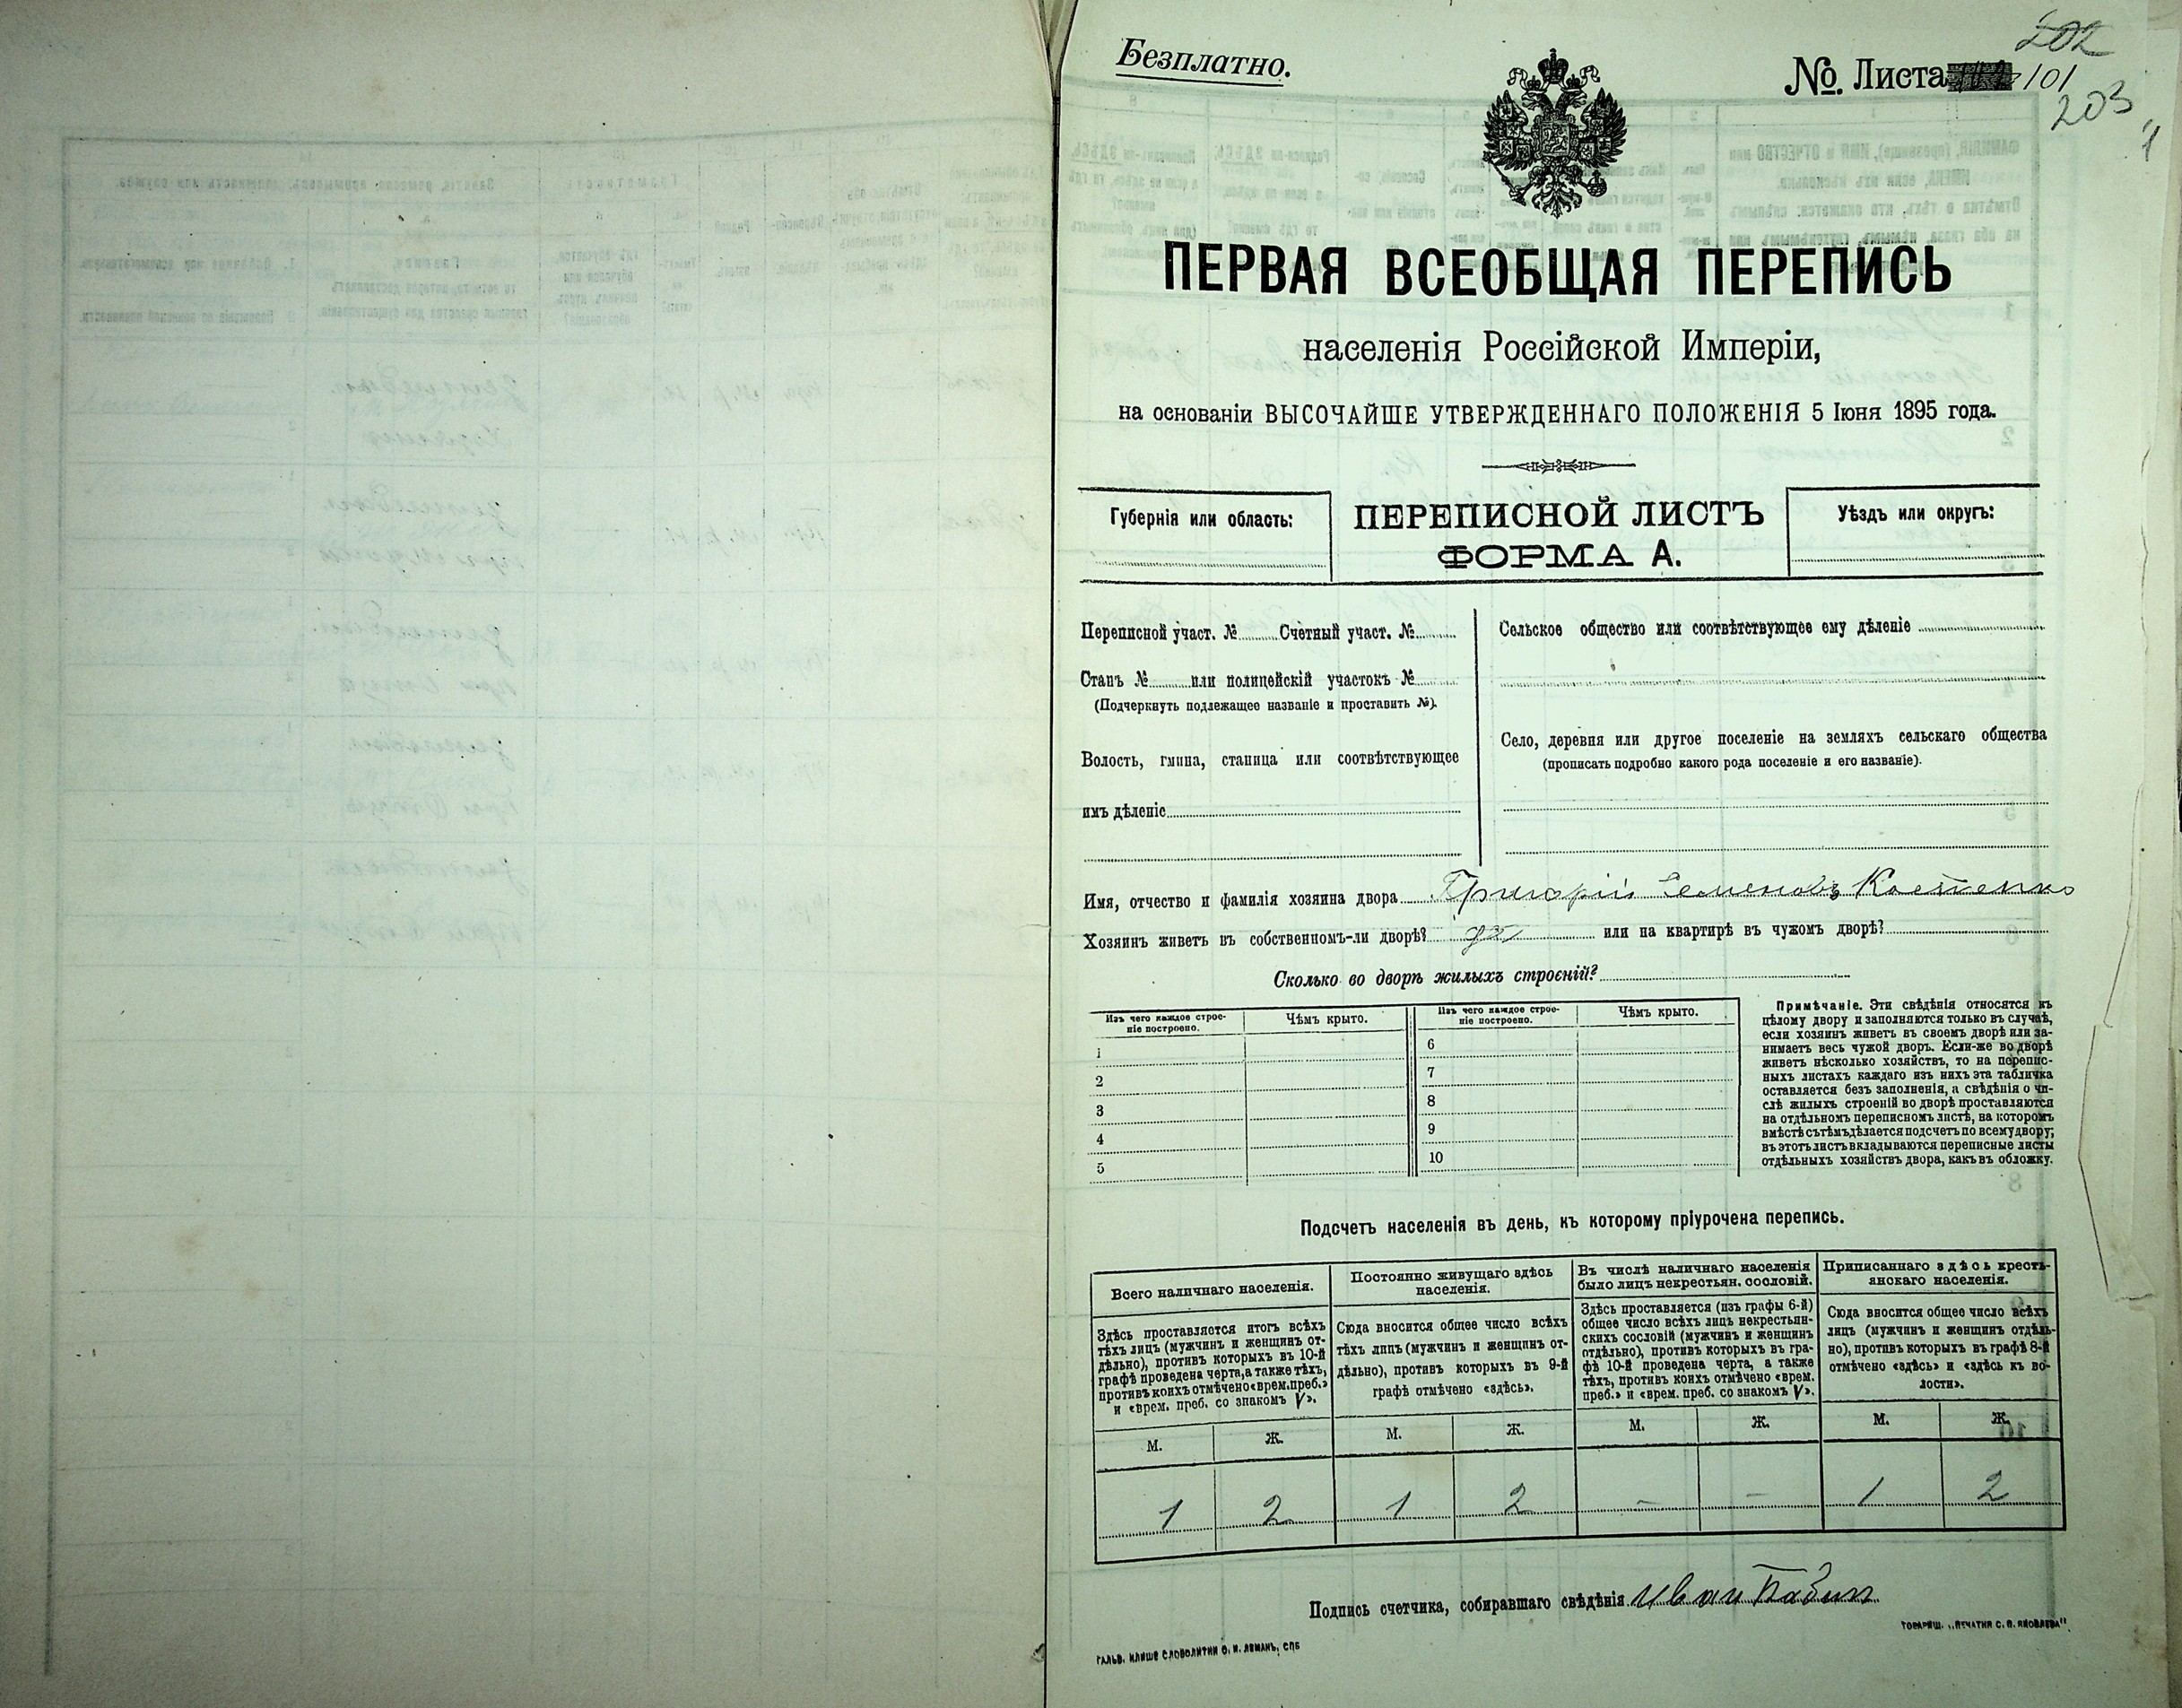 Безплатно.
№ Листа 101
202
203
ПЕРВАЯ ВСЕОБЩАЯ ПЕРЕПИСЬ
населенія Россійской Имперіи,
на основаніи ВЫСОЧАЙШЕ УТВЕРЖДЕННАГО ПОЛОЖЕНІЯ 5 Іюня 1895 года.
Губернія или область:
ПЕРЕПИСНОЙ ЛИСТЪ
ФОРМА А.
Уѣздъ или округъ:
Переписной участ. № Счетный участ. №
Станъ № или полицейскій участокъ №
(Подчеркнуть подлежащее названіе и проставить №).
Волость, гмина, станица или соотвѣтствующее
имъ дѣленіе
Сельское общество или соотвѣтствующее ему дѣленіе
Село, деревня или другое поселеніе на земляхъ сельскаго общества
(прописать подробно какого рода поселеніе и его названіе).
Имя, отчество и фамилія хозяина двора Григорій Семеновъ Костенко
Хозяинъ живетъ въ собственномъ-ли дворѣ? да или на квартирѣ въ чужомъ дворѣ?
Сколько во дворѣ жилыхъ строеній?
Изъ чего каждое строе-
ніе построено.
Чѣмъ крыто.
Изъ чего каждое строе-
ніе построено.
Чѣмъ крыто.
1
2
3
4
5
6
7
8
9
10
Примѣчаніе. Эти свѣдѣнія относятся къ
цѣлому двору и заполняются только въ случаѣ,
если хозяинъ живетъ въ своемъ дворѣ или за-
нимаетъ весь чужой дворъ. Если-же во дворѣ
живетъ нѣсколько хозяйствъ, то на перепис-
ныхъ листахъ каждаго изъ нихъ эта табличка
оставляется безъ заполненія, а свѣдѣнія о чи-
слѣ жилыхъ строеній во дворѣ проставляются
на отдѣльномъ переписномъ листѣ, на которомъ
вмѣстѣ съ тѣмъ дѣлается подсчетъ по всему двору;
въ этотъ листъ вкладываются переписные листы
отдѣльныхъ хозяйствъ двора, какъ въ обложку.
Подсчетъ населенія въ день, къ которому пріурочена перепись.
Всего наличнаго населенія.
Здѣсь проставляется итогъ всѣхъ
тѣхъ лицъ (мужчинъ и женщинъ от-
дѣльно), противъ которыхъ въ 10-й
графѣ проведена черта, а также тѣхъ,
противъ коихъ отмѣчено «врем. преб.»
и «врем. преб. со знакомъ V».
Постоянно живущаго здѣсь
населенія.
Сюда вносится общее число всѣхъ
тѣхъ лицъ (мужчинъ и женщинъ от-
дѣльно), противъ которыхъ въ 9-й
графѣ отмѣчено «здѣсь».
Въ числѣ наличнаго населенія
было лицъ некрестьян. сословій.
Здѣсь проставляется (изъ графы 6-й)
общее число всѣхъ лицъ некрестьян-
скихъ сословій (мужчинъ и женщинъ
отдѣльно), противъ которыхъ въ гра-
фѣ 10-й проведена черта, а также
тѣхъ, противъ коихъ отмѣчено «врем.
преб.» и «врем. преб. со знакомъ V».
Приписаннаго здѣсь кресть-
янскаго населенія.
Сюда вносится общее число всѣхъ
лицъ (мужчинъ и женщинъ отдѣль-
но), противъ которыхъ въ графѣ 8-й
отмѣчено «здѣсь» и «здѣсь къ во-
лости».
М. Ж. М. Ж. М. Ж. М. Ж.
1 2 1 2 – – 1 2
Подпись счетчика, собиравшаго свѣдѣнія Иван
ГАЛЬВ. КЛИШЕ СЛОВОЛИТНИ О. И. ЛЕМАНЪ, СПБ
ТОВАРИЩ. „ПЕЧАТНЯ С. П. ЯКОВЛЕВА"